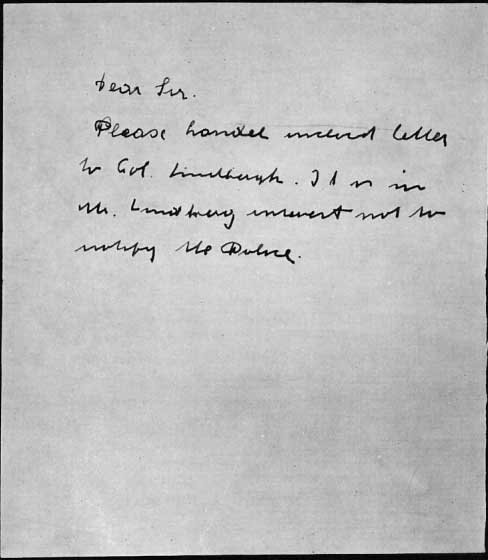 Dear Sir.
Please handel inclosed letter
to Col. Lindbergh. It is in
Mr. Lindberg interest not to
notify the Police.